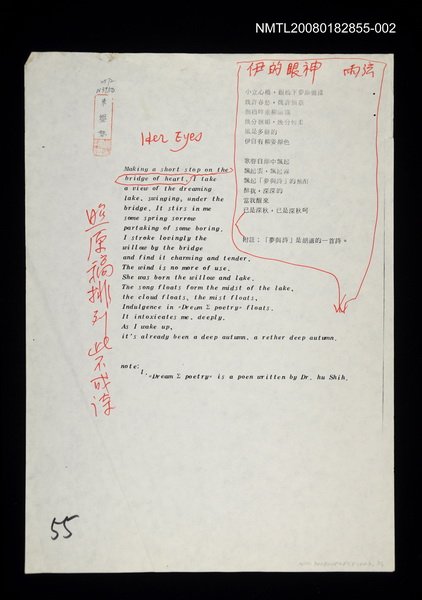 NMTL20080182855-002
伊的眼神 雨弦
小立心橋，觀橋下夢湖盪漾
幾許春愁，幾許無奈
撫橋畔垂柳
幾分嫵媚，幾分輕柔
風是多餘的
伊自有柳姿湖色
歌聲自湖中飄起
飄起雲，飄起霧
飄起「夢與詩」的
醉我，深深的
當我醒來
已是深秋，已是深秋呵
附註：「夢與詩」是胡適的一首詩。
Her Eyes
Making a short stop on the
bridge of heart, I take
a view of the dreaming
lake, swinging, under the
bridge. It stirs in me
some spring sorrow
partaking of some boring.
I stroke lovingly the
willow by the bridge
and find it charming and tender.
The wind is no more of use.
She was born the willow and lake.
The song floats form the midst of the lake,
the cloud floats, the mist floats.
Indulgence in «Dream Σ poetry» floats.
It intoxicates me, deeply.
As I wake up,
it's already been a deep autumn, a rether deep autumn.
note:
1. «Dream Σ poetry» is a poen written by Dr. hu Shih.
照原稿排列此不成詩
55